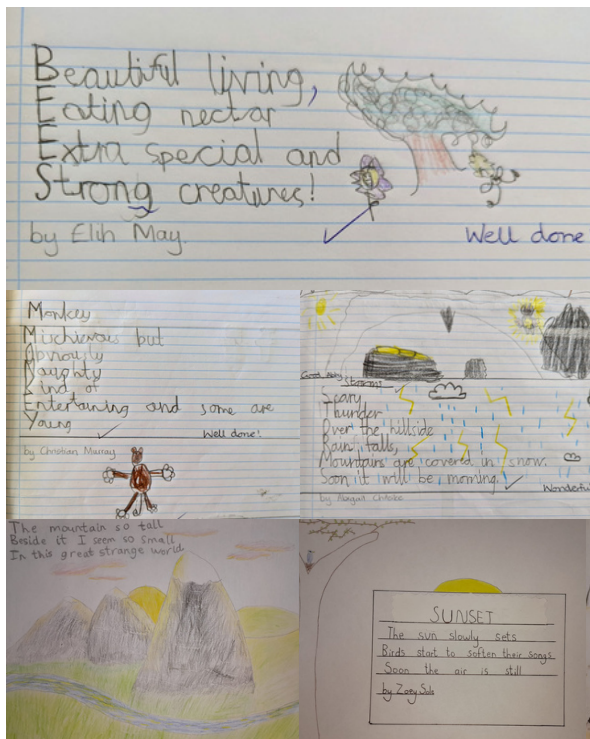 Beautiful living,
Eating nectar
Extra special and
Strong creatures!
by Elih May.
Well done
Monkey
Mischievous but
Naughty
Kind of
Entertaining and some are
Young
Well done!
by Christian Murray
Storms
Scary
Thunder
Over the hillside
Rain falls,
Mountains are covered in snow.
Soon it will be morning.
Wonderfu
by Abigail
The mountain so tall
Beside it I seem so small
In this great strange world
SUNSET
The sun slowly sets
Birds start to soften their songs
Soon the air is still
by Zoey Sals